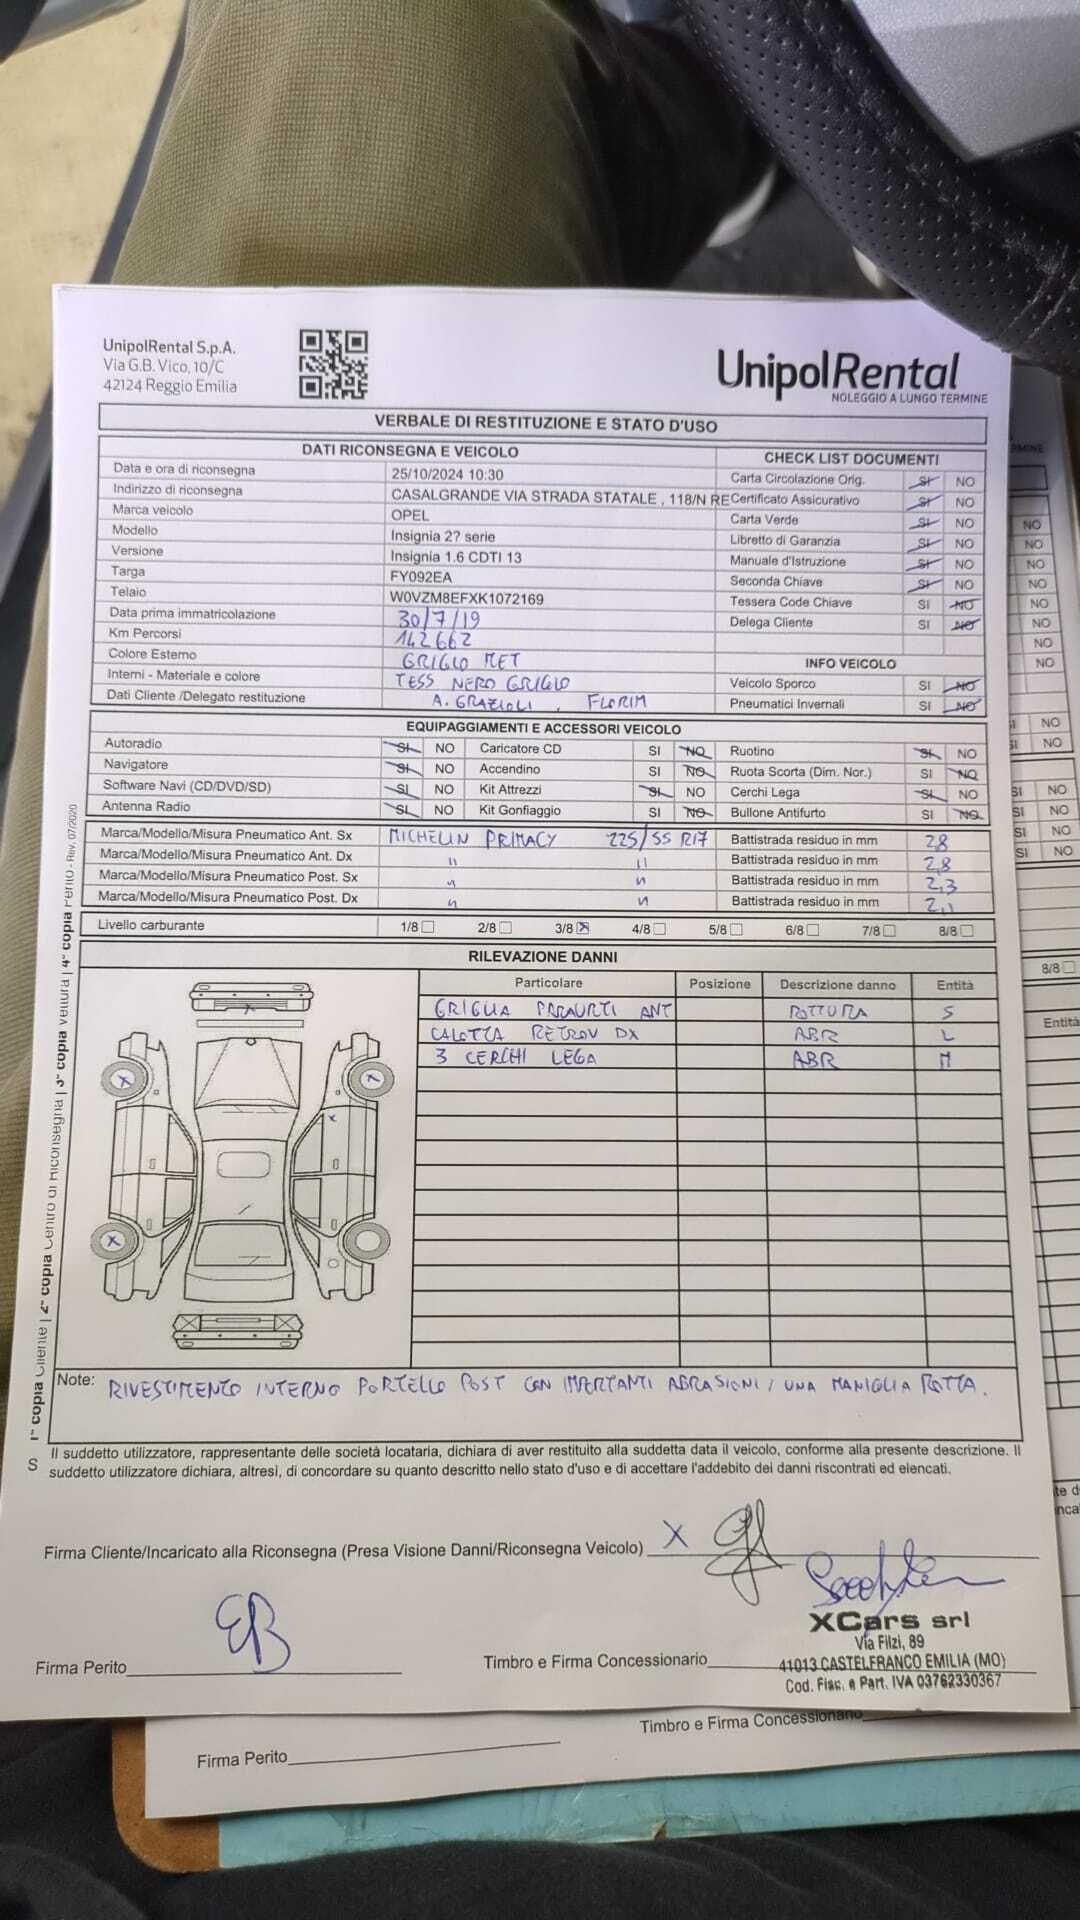 UnipolRental S.p.A.
Via G.B. Vico, 10/C
42124 Reggio Emilia
UnipolRental
NOLEGGIO A LUNGO TERMINE
VERBALE DI RESTITUZIONE E STATO D'USO
DATI RICONSEGNA E VEICOLO
Data e ora di riconsegna 25/10/2024 10:30
Indirizzo di riconsegna CASALGRANDE VIA STRADA STATALE , 118/N RE
Marca veicolo OPEL
Modello Insignia 2? serie
Versione Insignia 1.6 CDTI 13
Targa FY092EA
Telaio W0VZM8EFXK1072169
Data prima immatricolazione 30/7/19
Km Percorsi 142662
Colore Esterno GRIGIO MET
Interni - Materiale e colore TESS NERO GRIGIO
Dati Cliente /Delegato restituzione A. GRAZIOLI , FLORIM
CHECK LIST DOCUMENTI
Carta Circolazione Orig. SI NO
Certificato Assicurativo SI NO
Carta Verde SI NO
Libretto di Garanzia SI NO
Manuale d'Istruzione SI NO
Seconda Chiave SI NO
Tessera Code Chiave SI NO
Delega Cliente SI NO
INFO VEICOLO
Veicolo Sporco SI NO
Pneumatici Invernali SI NO
EQUIPAGGIAMENTI E ACCESSORI VEICOLO
Autoradio SI NO Caricatore CD SI NO Ruotino SI NO
Navigatore SI NO Accendino SI NO Ruota Scorta (Dim. Nor.) SI NO
Software Navi (CD/DVD/SD) SI NO Kit Attrezzi SI NO Cerchi Lega SI NO
Antenna Radio SI NO Kit Gonfiaggio SI NO Bullone Antifurto SI NO
Marca/Modello/Misura Pneumatico Ant. Sx MICHELIN PRIMACY 225/55 R17 Battistrada residuo in mm 2,8
Marca/Modello/Misura Pneumatico Ant. Dx " " Battistrada residuo in mm 2,8
Marca/Modello/Misura Pneumatico Post. Sx " " Battistrada residuo in mm 2,3
Marca/Modello/Misura Pneumatico Post. Dx " " Battistrada residuo in mm 2,1
Livello carburante 1/8 2/8 3/8 4/8 5/8 6/8 7/8 8/8
RILEVAZIONE DANNI
Particolare Posizione Descrizione danno Entità
GRIGLIA PARAURTI ANT ROTTURA S
CALOTTA RETROV DX ABR L
3 CERCHI LEGA ABR M
Note: RIVESTIMENTO INTERNO PORTELLO POST CON IMPORTANTI ABRASIONI / UNA MANIGLIA ROTTA.
Il suddetto utilizzatore, rappresentante delle società locataria, dichiara di aver restituito alla suddetta data il veicolo, conforme alla presente descrizione. Il
suddetto utilizzatore dichiara, altresì, di concordare su quanto descritto nello stato d'uso e di accettare l'addebito dei danni riscontrati ed elencati.
Firma Cliente/Incaricato alla Riconsegna (Presa Visione Danni/Riconsegna Veicolo) X
Firma Perito
Timbro e Firma Concessionario
XCars srl
Via Filzi, 89
41013 CASTELFRANCO EMILIA (MO)
Cod. Fisc. e Part. IVA 03762330367
1ª copia Cliente | 2ª copia Centro di Riconsegna | 3ª copia Vettura | 4ª copia Perito - Rev. 07/2020
S
NO
NO
NO
NO
NO
NO
NO
NO
SI NO
SI NO
SI NO
SI NO
SI NO
SI NO
8/8
Entità
Timbro e Firma Concessionario
Firma Perito